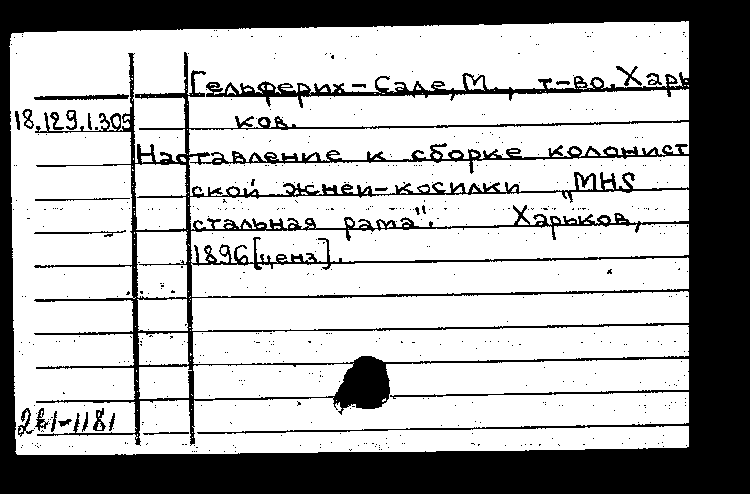 Гельферих-Саде, М., т-во. Харь
18.129.1.305 ков.
Наставление к сборке колонист
ской жнеи-косилки „MHS
стальная рама". Харьков,
1896[ценз].